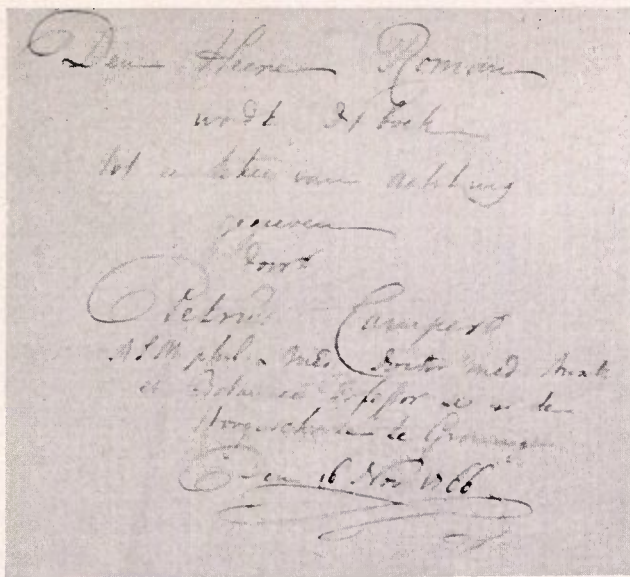 Den Heere Romain
wordt dit boek
tot een teken van achting
gegeven
door
Petrus Camper
A L M phil. & Med. Doctor Med. Anat.
et Botanices Professor
te Groningen
Den 16 Nov 1766